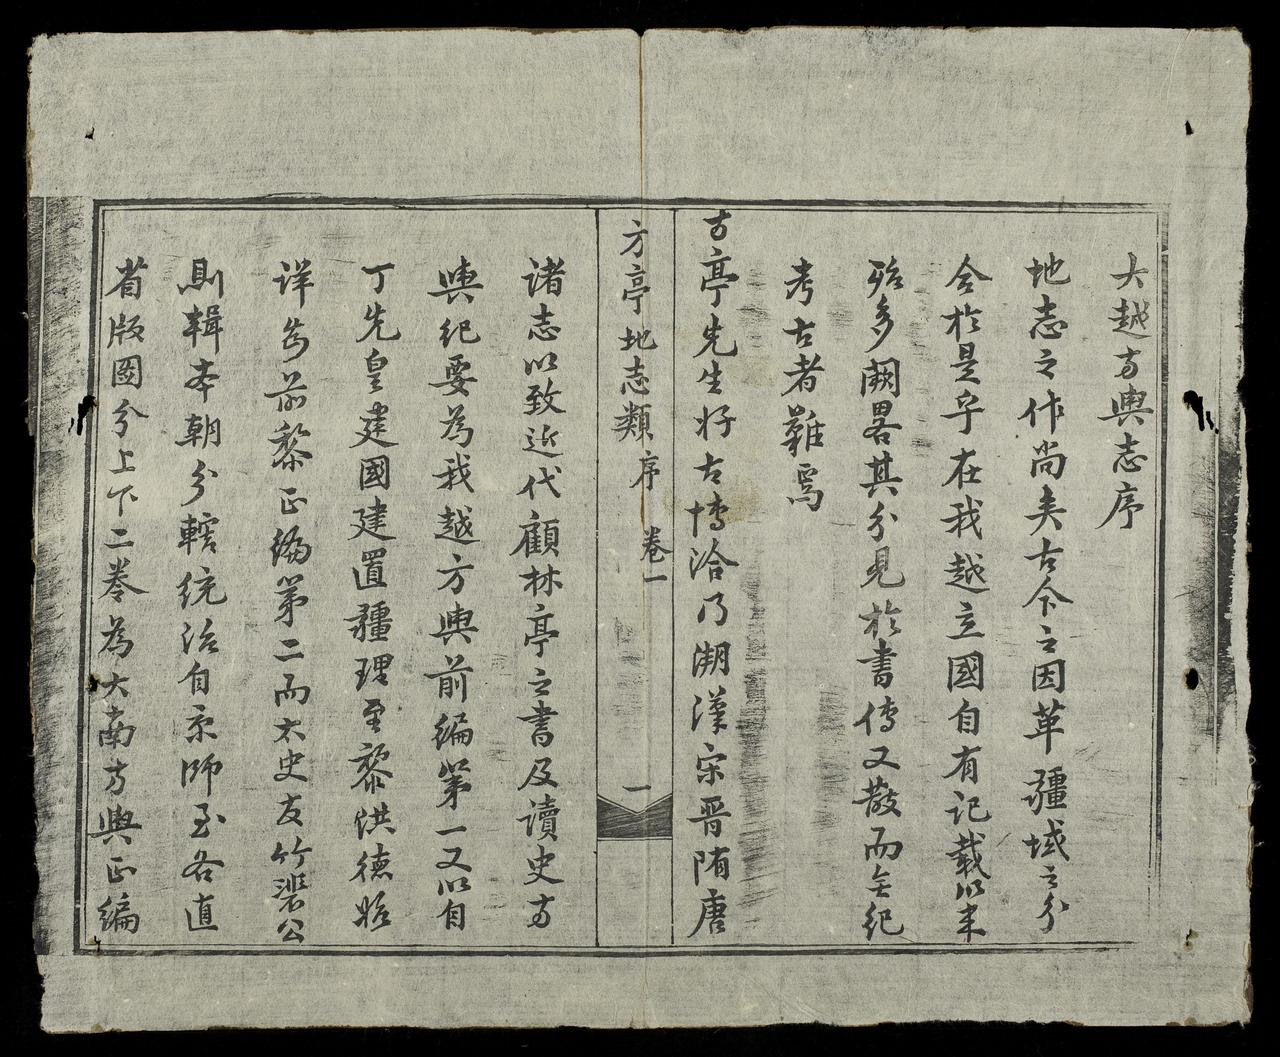 大越方輿志序
地志之作尚矣古今之因革疆域之分
合於是乎在我越立國自有記載以来
殆多闕畧其分見於書傳又散而無紀
考古者難焉
方亭先生好古博洽乃溯漢宋晉隋唐
方亭地志類 序 卷一 一
諸志以致近代顧林亭之書及讀史方
輿紀要為我越方輿前編第一又以自
丁先皇建國建置疆理至黎洪德始
详為前黎正編第二而太史友竹裴公
則輯本朝分轄统治自京師至各直
省版圖分上下二卷為大南方輿正編